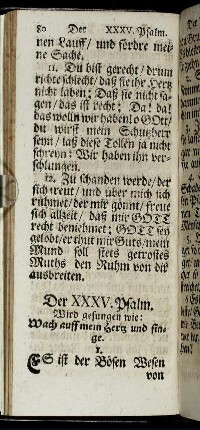 80 Der XXXV. Psalm.
nen Lauff/ und fördre mei-
ne Sache.
11. Du bist gerecht/ drum
richte schlecht/ daß sie ihr Hertz
nicht laben; Daß sie nicht sa-
gen/ das ist recht; Da! da!
das wolln wir haben! o GOtt/
du wirst mein Schutzherr
seyn/ laß diese Tollen ja nicht
schreyn: Wir haben ihn ver-
schlungen.
12. Zu schanden werde/ der
sich freut/ und über mich sich
rühmet/ der mir gönnt/ freue
sich allzeit/ daß mir GOTT
recht beniehmet; GOTT sey
gelobt/ er thut mir Guts/ mein
Mund soll stets getrostes
Muths den Ruhm von dir
ausbreiten.
Der XXXV. Psalm.
Wird gesungen wie:
Wach auff mein Hertz und sin-
ge.
1.
ES ist der Bösen Wesen
von